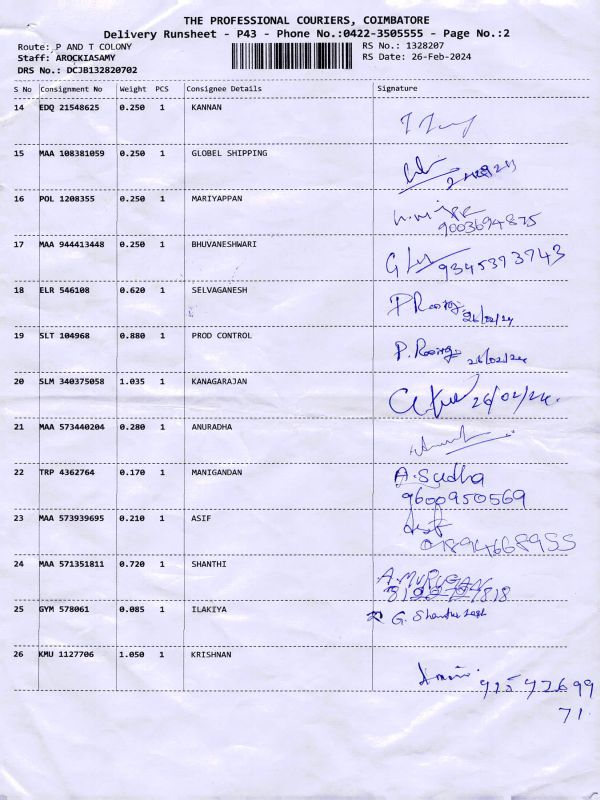 THE PROFESSIONAL COURIERS, COIMBATORE
Delivery Runsheet - P43 - Phone No.:0422-3505555 - Page No.:2
Route: P AND T COLONY RS No.: 1328207
Staff: AROCKIASAMY RS Date: 26-Feb-2024
DRS No.: DCJB132820702
S No Consignment No Weight PCS Consignee Details Signature
14 EDQ 21548625 0.250 1 KANNAN
15 MAA 108381059 0.250 1 GLOBEL SHIPPING
16 POL 1208355 0.250 1 MARIYAPPAN
9003694875
17 MAA 944413448 0.250 1 BHUVANESHWARI
9345373743
18 ELR 546108 0.620 1 SELVAGANESH
26/02/24
19 SLT 104968 0.880 1 PROD CONTROL
26/02/24
20 SLM 340375058 1.035 1 KANAGARAJAN
26/02/24.
21 MAA 573440204 0.280 1 ANURADHA
22 TRP 4362764 0.170 1 MANIGANDAN A.Sudha
9600950569
23 MAA 573939695 0.210 1 ASIF Asif
24 MAA 571351811 0.720 1 SHANTHI A.MURUGAN
25 GYM 578061 0.085 1 ILAKIYA
26 KMU 1127706 1.050 1 KRISHNAN
71.